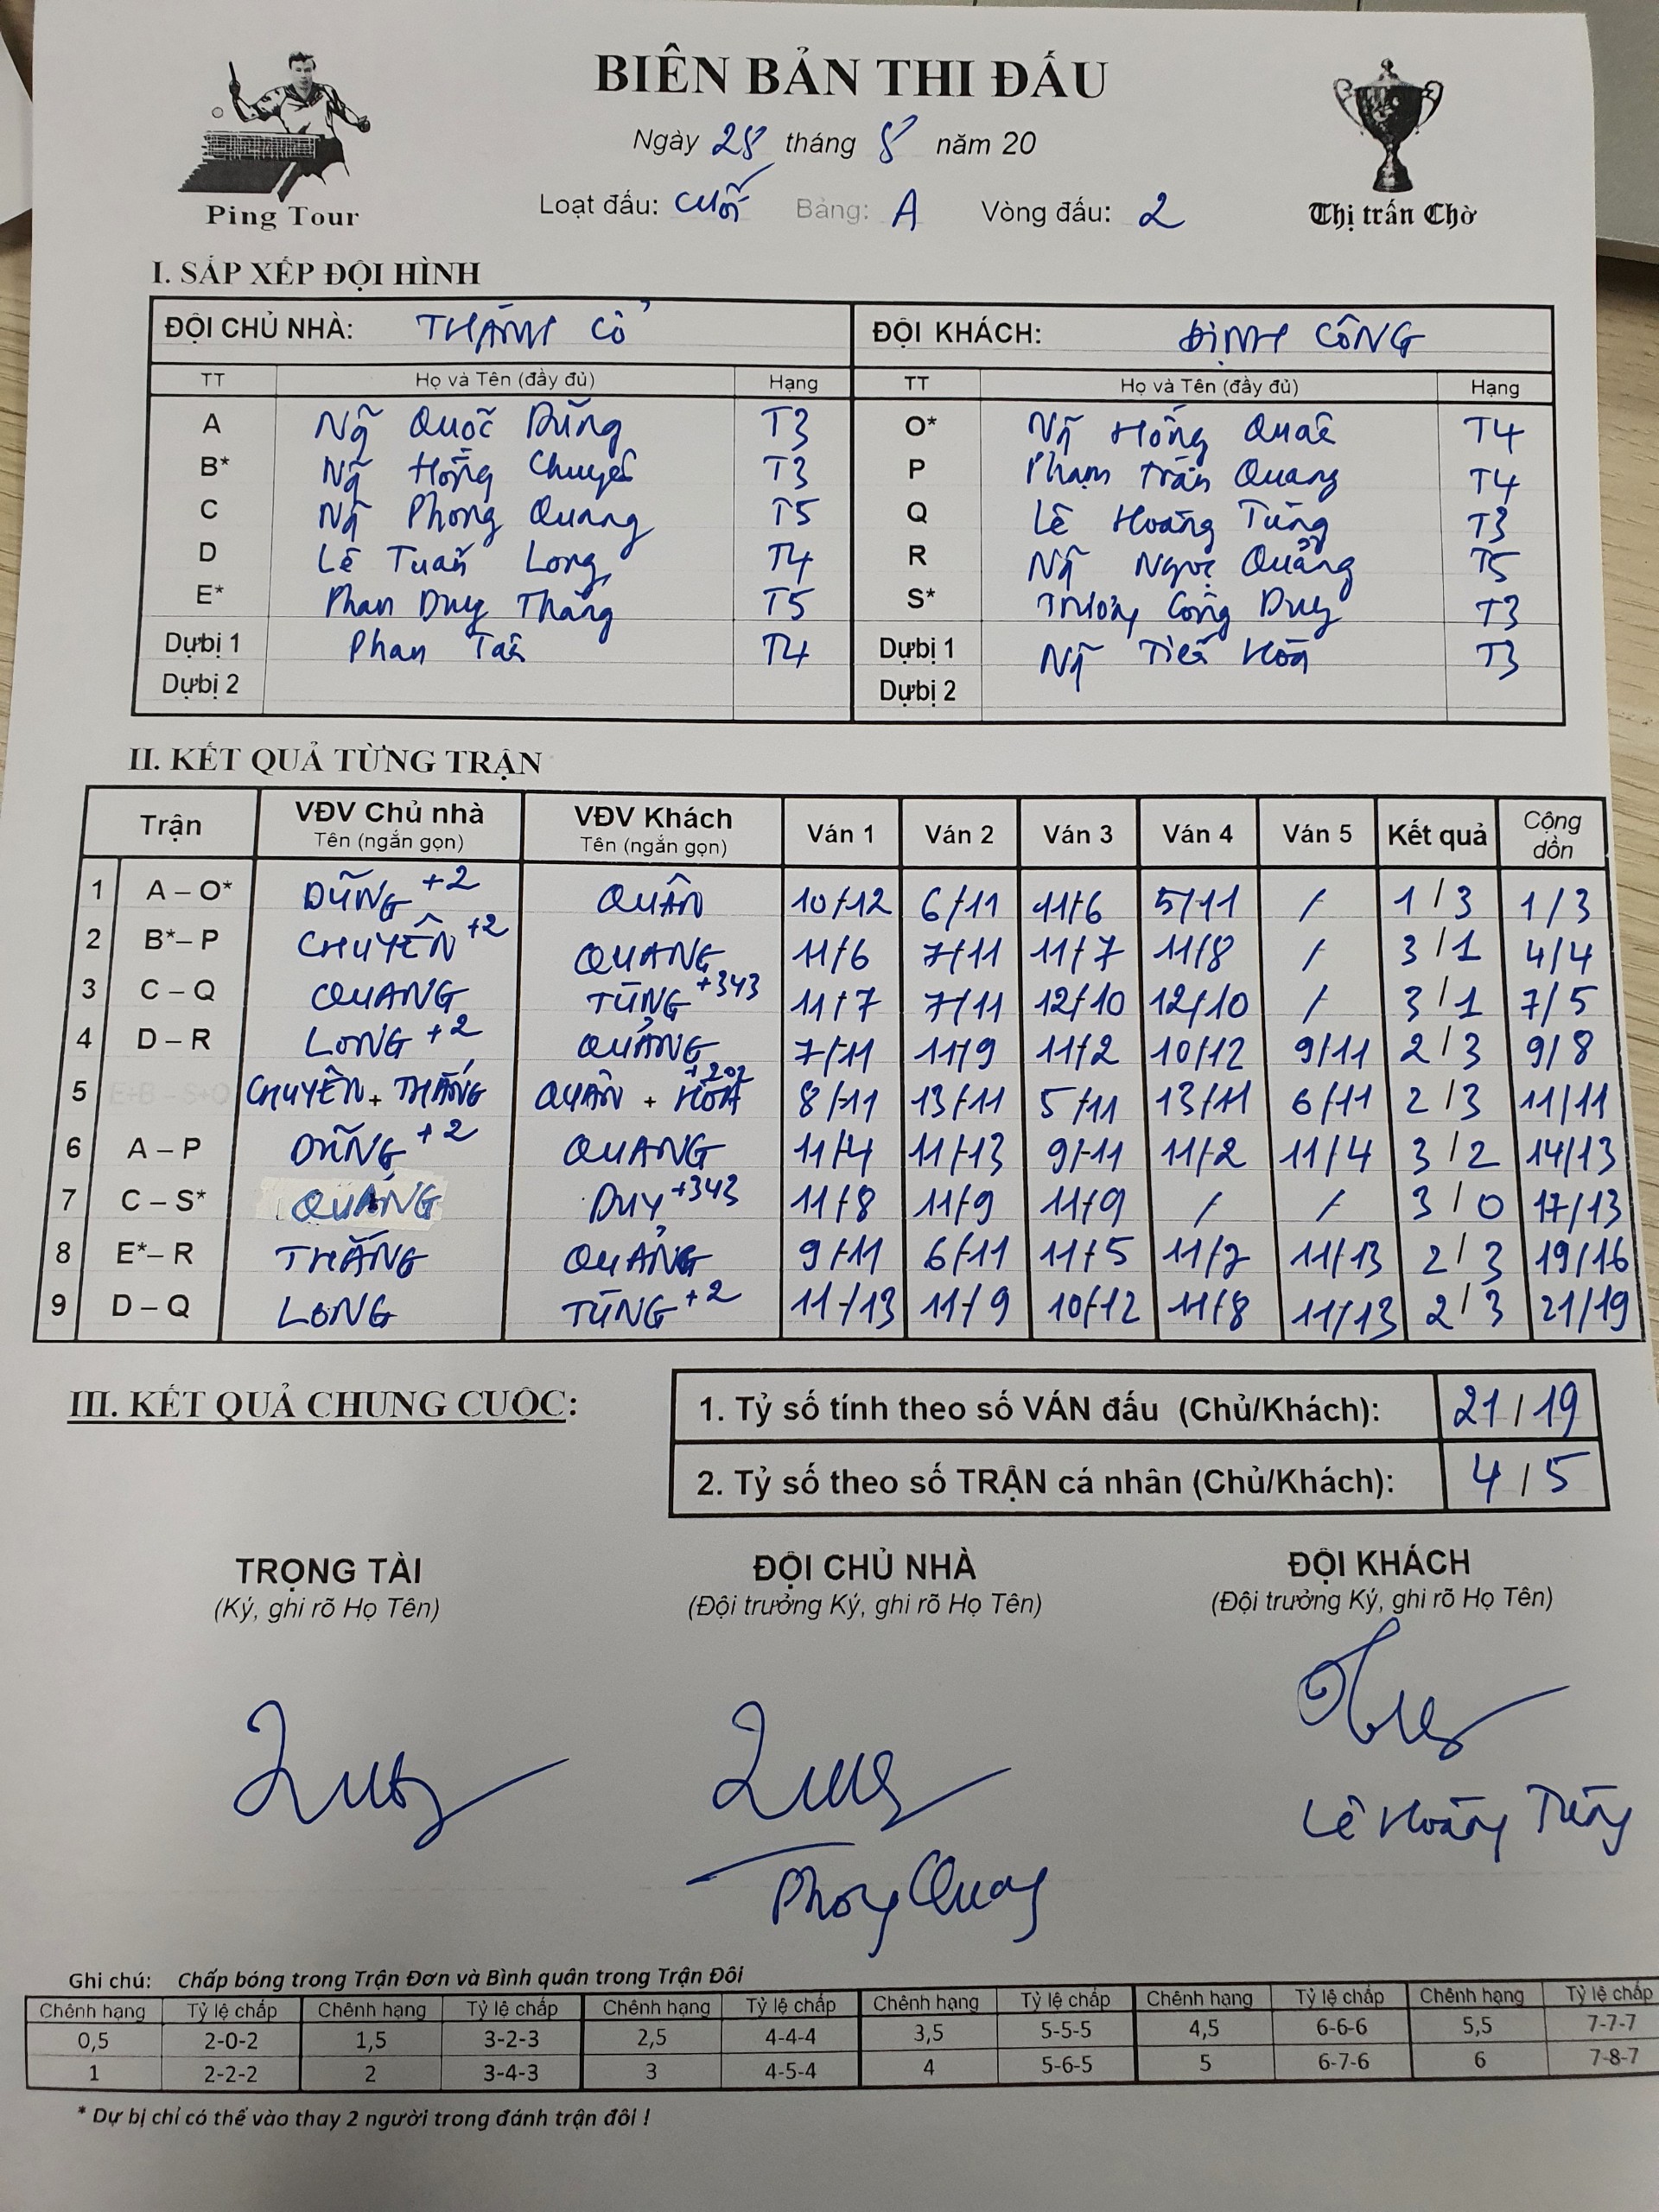 BIÊN BẢN THI ĐẤU
Ngày 28 tháng 8 năm 20
Loạt đấu: Cuối Bảng: A Vòng đấu: 2
Ping Tour
Thị trấn Chờ
I. SẮP XẾP ĐỘI HÌNH
ĐỘI CHỦ NHÀ: THÀNH CỔ ĐỘI KHÁCH: ĐỊNH CÔNG
TT Họ và Tên (đầy đủ) Hạng TT Họ và Tên (đầy đủ) Hạng
A Ng~ Quốc Dũng T3 O* Ng~ Hồng Quân T4
B* Ng~ Hồng Chuyên T3 P Phạm Trần Quang T4
C Ng~ Phong Quang T5 Q Lê Hoàng Tùng T3
D Lê Tuấn Long T4 R Ng~ Ngọc Quảng T5
E* Phan Duy Thắng T5 S* Trương Công Duy T3
Dự bị 1 Phan Tấn T4 Dự bị 1 Ng~ Tiến Hòa T3
Dự bị 2 Dự bị 2
II. KẾT QUẢ TỪNG TRẬN
Trận VĐV Chủ nhà Tên (ngắn gọn) VĐV Khách Tên (ngắn gọn) Ván 1 Ván 2 Ván 3 Ván 4 Ván 5 Kết quả Cộng dồn
1 A – O* DŨNG +2 QUÂN 10/12 6/11 11/6 5/11 / 1/3 1/3
2 B*– P CHUYÊN +2 QUANG 11/6 7/11 11/7 11/8 / 3/1 4/4
3 C – Q QUANG TÙNG +343 11/7 7/11 12/10 12/10 / 3/1 7/5
4 D – R LONG +2 QUẢNG 7/11 11/9 11/2 10/12 9/11 2/3 9/8
5 E+B – S+O CHUYÊN + THẮNG QUÂN + HÒA +202 8/11 13/11 5/11 13/11 6/11 2/3 11/11
6 A – P DŨNG +2 QUANG 11/4 11/13 9/11 11/2 11/4 3/2 14/13
7 C – S* QUANG DUY +343 11/8 11/9 11/9 / / 3/0 17/13
8 E*– R THẮNG QUẢNG 9/11 6/11 11/5 11/7 11/13 2/3 19/16
9 D – Q LONG TÙNG +2 11/13 11/9 10/12 11/8 11/13 2/3 21/19
III. KẾT QUẢ CHUNG CUỘC:
1. Tỷ số tính theo số VÁN đấu (Chủ/Khách): 21/19
2. Tỷ số theo số TRẬN cá nhân (Chủ/Khách): 4/5
TRỌNG TÀI ĐỘI CHỦ NHÀ ĐỘI KHÁCH
(Ký, ghi rõ Họ Tên) (Đội trưởng Ký, ghi rõ Họ Tên) (Đội trưởng Ký, ghi rõ Họ Tên)
Lê Hoàng Tùng
Phong Quang
Ghi chú: Chấp bóng trong Trận Đơn và Bình quân trong Trận Đôi
Chênh hạng Tỷ lệ chấp Chênh hạng Tỷ lệ chấp Chênh hạng Tỷ lệ chấp Chênh hạng Tỷ lệ chấp Chênh hạng Tỷ lệ chấp Chênh hạng Tỷ lệ chấp
0,5 2-0-2 1,5 3-2-3 2,5 4-4-4 3,5 5-5-5 4,5 6-6-6 5,5 7-7-7
1 2-2-2 2 3-4-3 3 4-5-4 4 5-6-5 5 6-7-6 6 7-8-7
* Dự bị chỉ có thể vào thay 2 người trong đánh trận đôi !